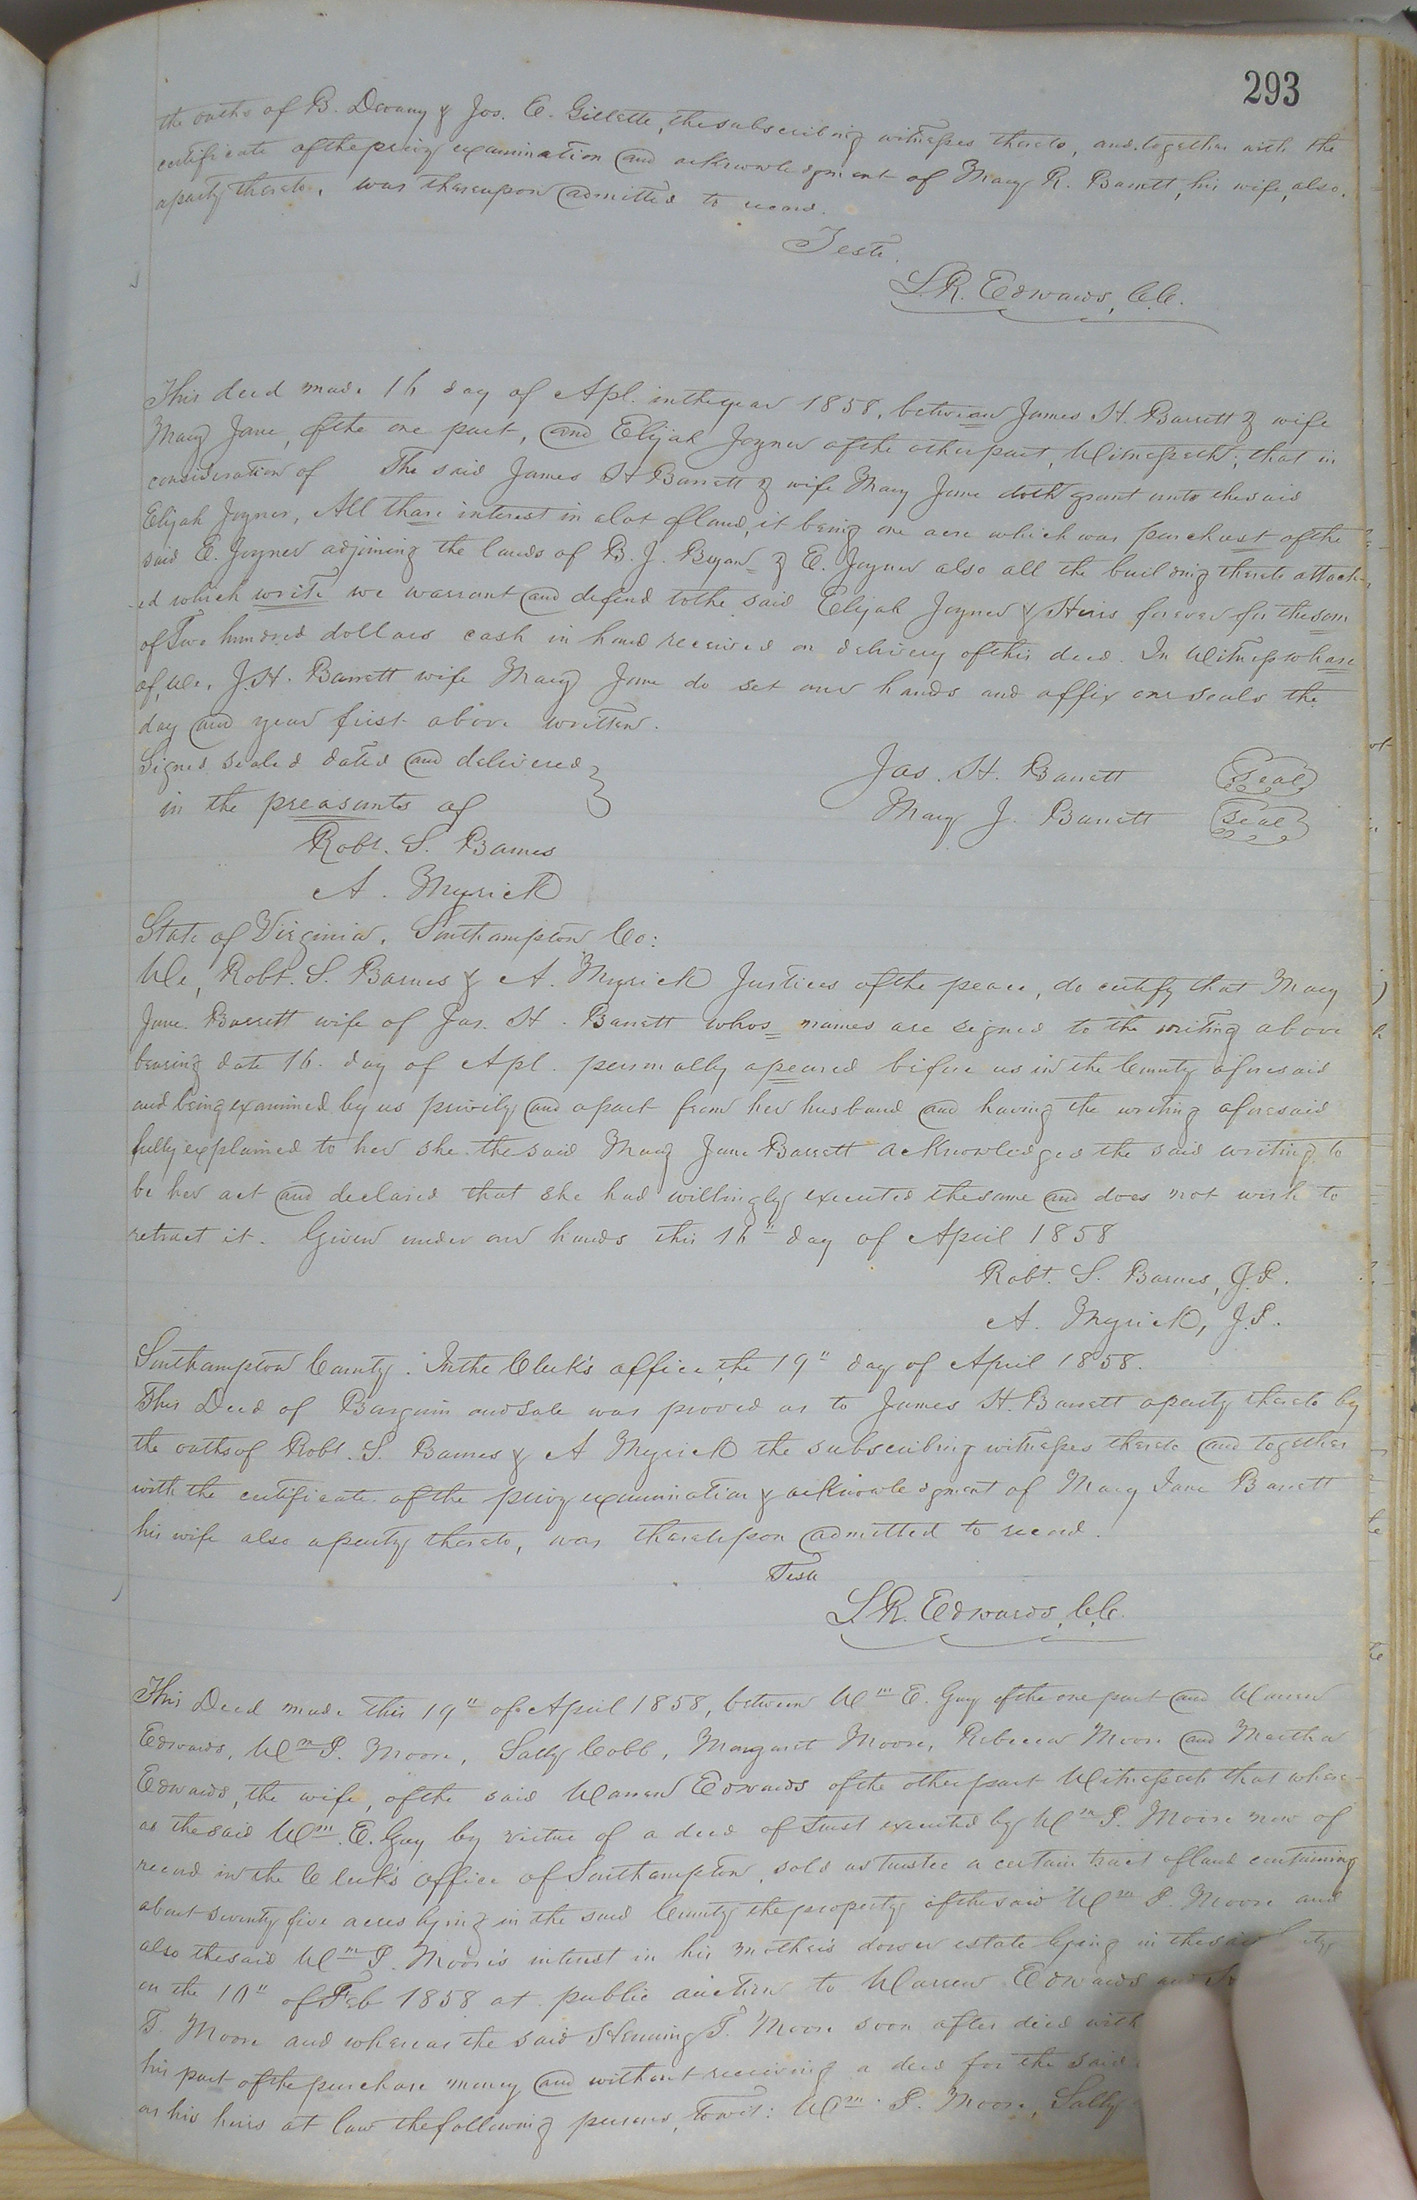 293
the oaths of B. Devany & Jos. E. Gillette, the subscribing witnesses thereto, and together with the
certificate of the privy examination and acknowledgment of Mary R. Barrett, his wife, also
a party thereto, was thereupon admitted to record.
Teste.
L.R. Edwards, C.C.
This deed made 16 day of Apl. in the year 1858, between James H. Barrett & wife
Mary Jane, of the one part, and Elijah Joyner of the other part, Witnesseth; that in
consideration of The said James H Barrett & wife Mary Jane doth grant unto the said
Elijah Joyner, All thare interest in a lot of land, it being one acre which was purchast of the
said E. Joyner adjining the lands of B. J. Bryan & E. Joyner also all the building thereto attach-
-ed which write we warrant and defend to the said Elijah Joyner & Heirs forever for the som
of Two hundred dollars cash in hand received on delivery of this deed. In Witness whare
of, We, J. H. Barrett wife Mary Jane do set our hands and affix our seals the
day and year first above written.
Signed sealed dated and delivered
in the preasunts of
Robt. S. Barnes
A. Myrick
Jas. H. Barrett Seal
Mary J. Barrett Seal
State of Virginia, Southampton Co:
We, Robt. S. Barnes & A. Myrick Justices of the peace, do certify that Mary
Jane Barrett wife of Jas. H. Barrett whos names are signed to the writing above
bearing date 16. day of Apl. personally apeared before us in the County aforesaid
and being examined by us privily and apart from her husband and having the writing aforesaid
fully explained to her she the said Mary Jane Barrett acknowledged the said writing to
be her act and declared that she had willingly executed the same and does not wish to
retract it. Given under our hands this 16" day of April 1858
Robt. S. Barnes, J.P.
A. Myrick, J.P.
Southampton County. In the Clerk's office, the 19" day of April 1858.
This Deed of Bargain and sale was proved as to James H. Barrett a party thereto by
the oaths of Robt. S. Barnes & A Myrick the subscribing witnesses thereto and together
with the certificate of the privy examination & acknowledgment of Mary Jane Barrett
his wife also a party thereto, was thereupon admitted to record.
Teste
L.R. Edwards, C.C.
This Deed made this 19" of April 1858, between Wm E. Guy of the one part and Warren
Edwards, Wm P. Moore, Sally Cobb, Margaret Moore, Rebecca Moore and Martha
Edwards, the wife, of the said Warren Edwards of the other part Witnesseth that where-
as the said Wm. E. Guy by virtue of a deed of trust executed by Wm P. Moore now of
record in the Clerk's office of Southampton, sold as trustee a certain tract of land containing
about seventy five acres lying in the said County the property of the said Wm P. Moore and
also the said Wm P. Moore's interest in his mother's dower estate lying in the said
on the 10" of Feb 1858 at public auction to Warren Edwards and
T. Moore and whereas the said Henning T. Moore soon after died with
his part of the purchase money and without receiving a deed for the said
as his heirs at law the following persons, towit: Wm. P. Moore, Sally